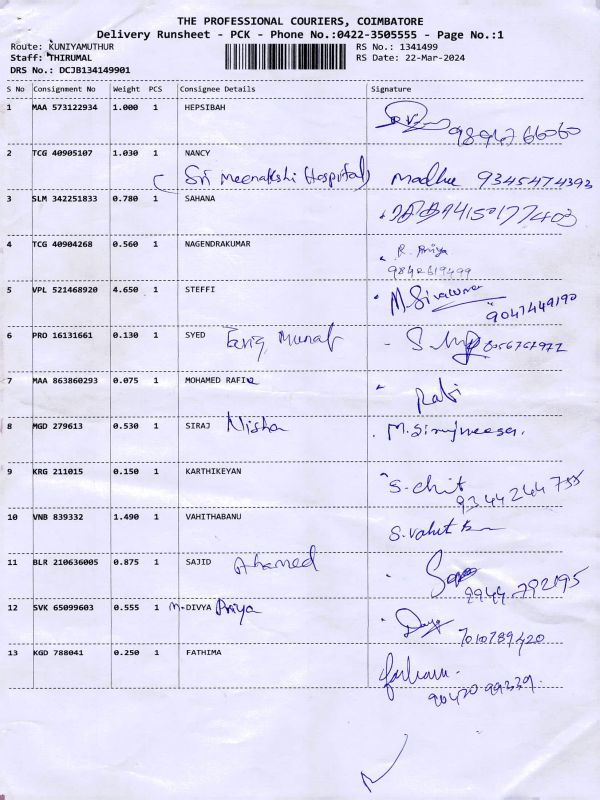 THE PROFESSIONAL COURIERS, COIMBATORE
Delivery Runsheet - PCK - Phone No.:0422-3505555 - Page No.:1
Route: KUNIYAMUTHUR RS No.: 1341499
Staff: THIRUMAL RS Date: 22-Mar-2024
DRS No.: DCJB134149901
S No Consignment No Weight PCS Consignee Details Signature
1 MAA 573122934 1.000 1 HEPSIBAH
9894766060
2 TCG 40905107 1.030 1 NANCY
(Sri Meenakshi Hospital) Madhu 9345474393
3 SLM 342251833 0.780 1 SAHANA
4 TCG 40904268 0.560 1 NAGENDRAKUMAR R. Priya
9842619499
5 VPL 521468920 4.650 1 STEFFI M. Sivakumar
9047449190
6 PRO 16131661 0.130 1 SYED Tariq Munaf
7 MAA 863860293 0.075 1 MOHAMED RAFIQ Rabi
8 MGD 279613 0.530 1 SIRAJ Nisha
9 KRG 211015 0.150 1 KARTHIKEYAN
9344244755
10 VNB 839332 1.490 1 VAHITHABANU
11 BLR 210636005 0.875 1 SAJID Ahamed
12 SVK 65099603 0.555 1 M.DIVYA Priya
7010789420
13 KGD 788041 0.250 1 FATHIMA